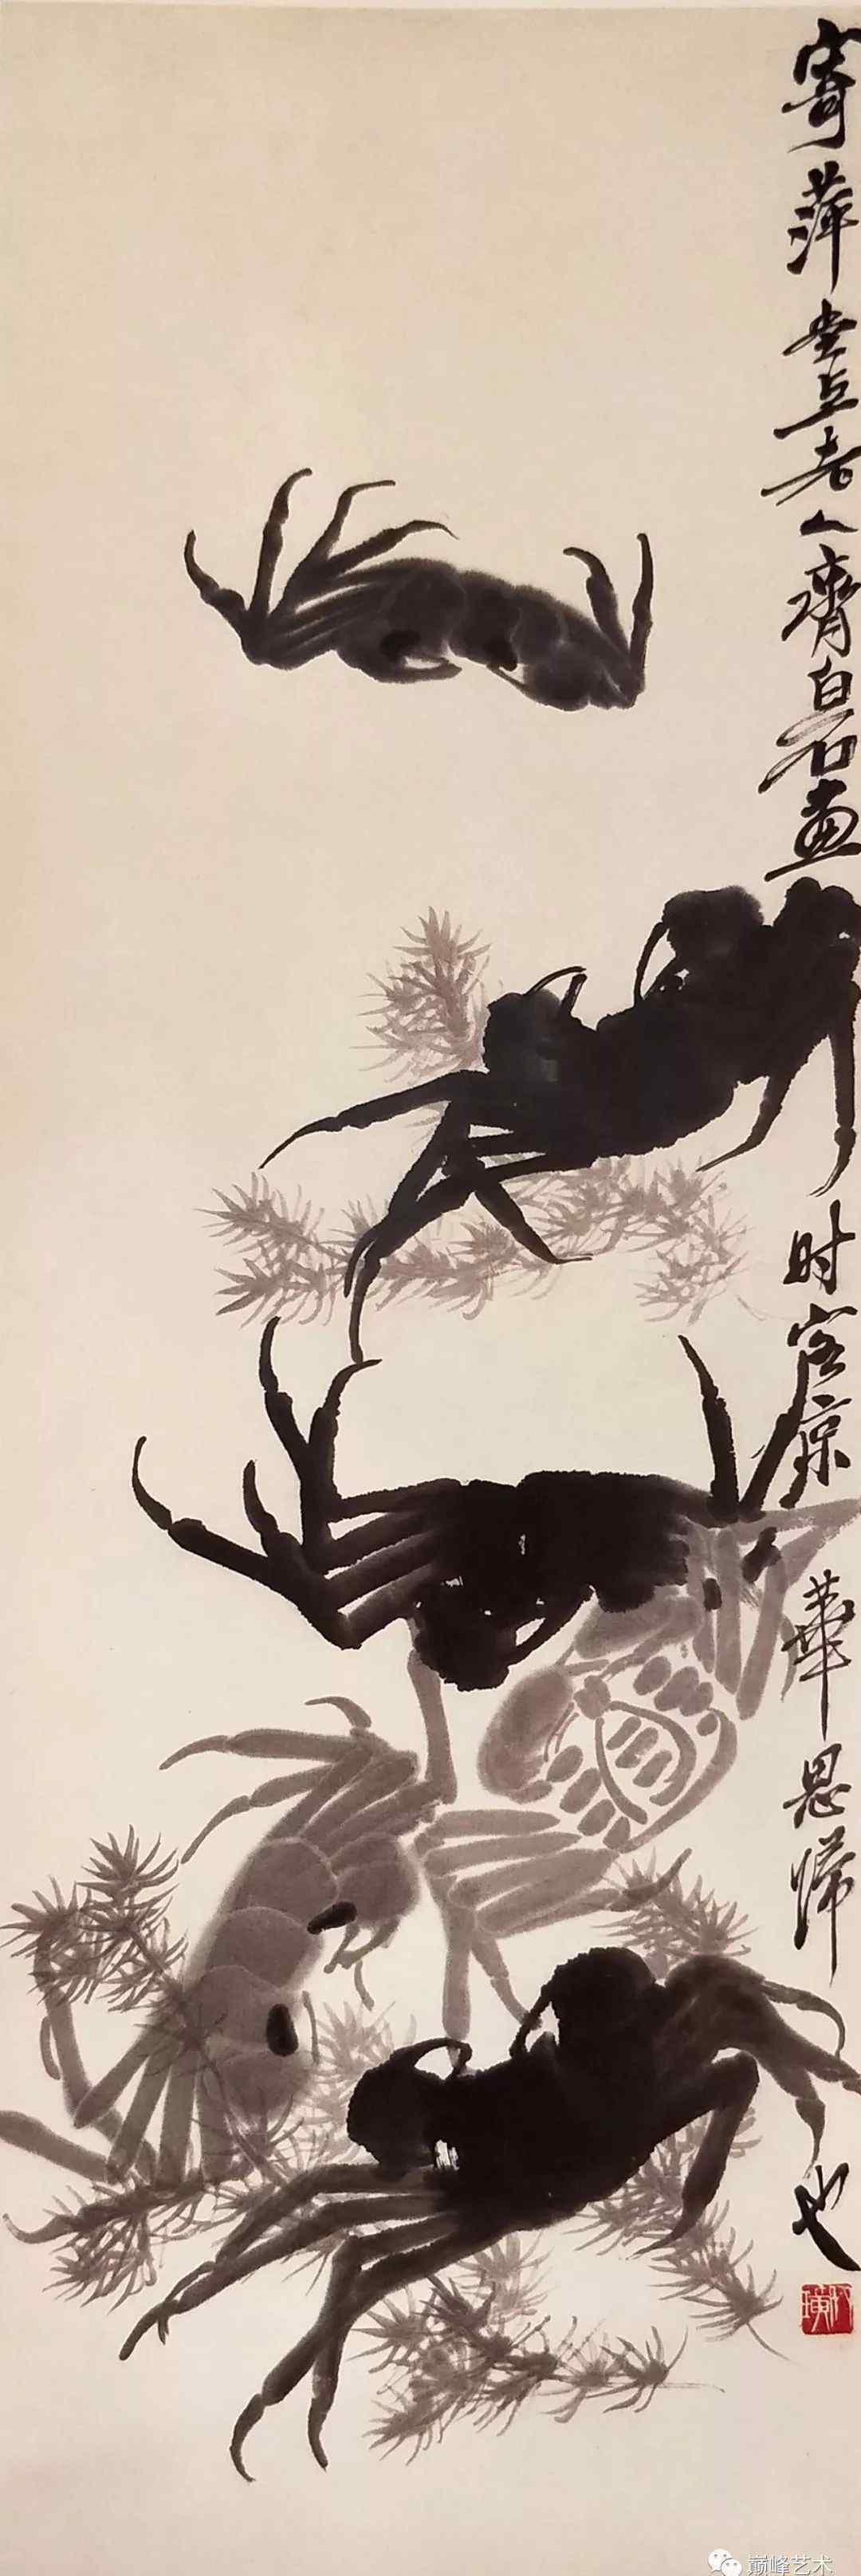 寄萍堂上老人齊白石畫时客京華思歸也
巅峰艺术